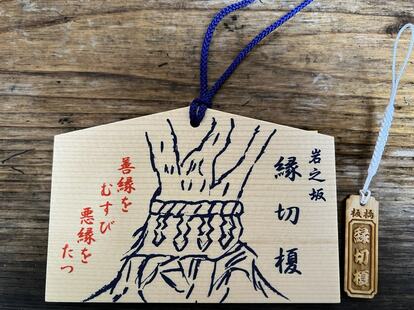 岩之坂
縁切榎
善縁を
むすび
悪縁を
たつ
板橋
縁切榎